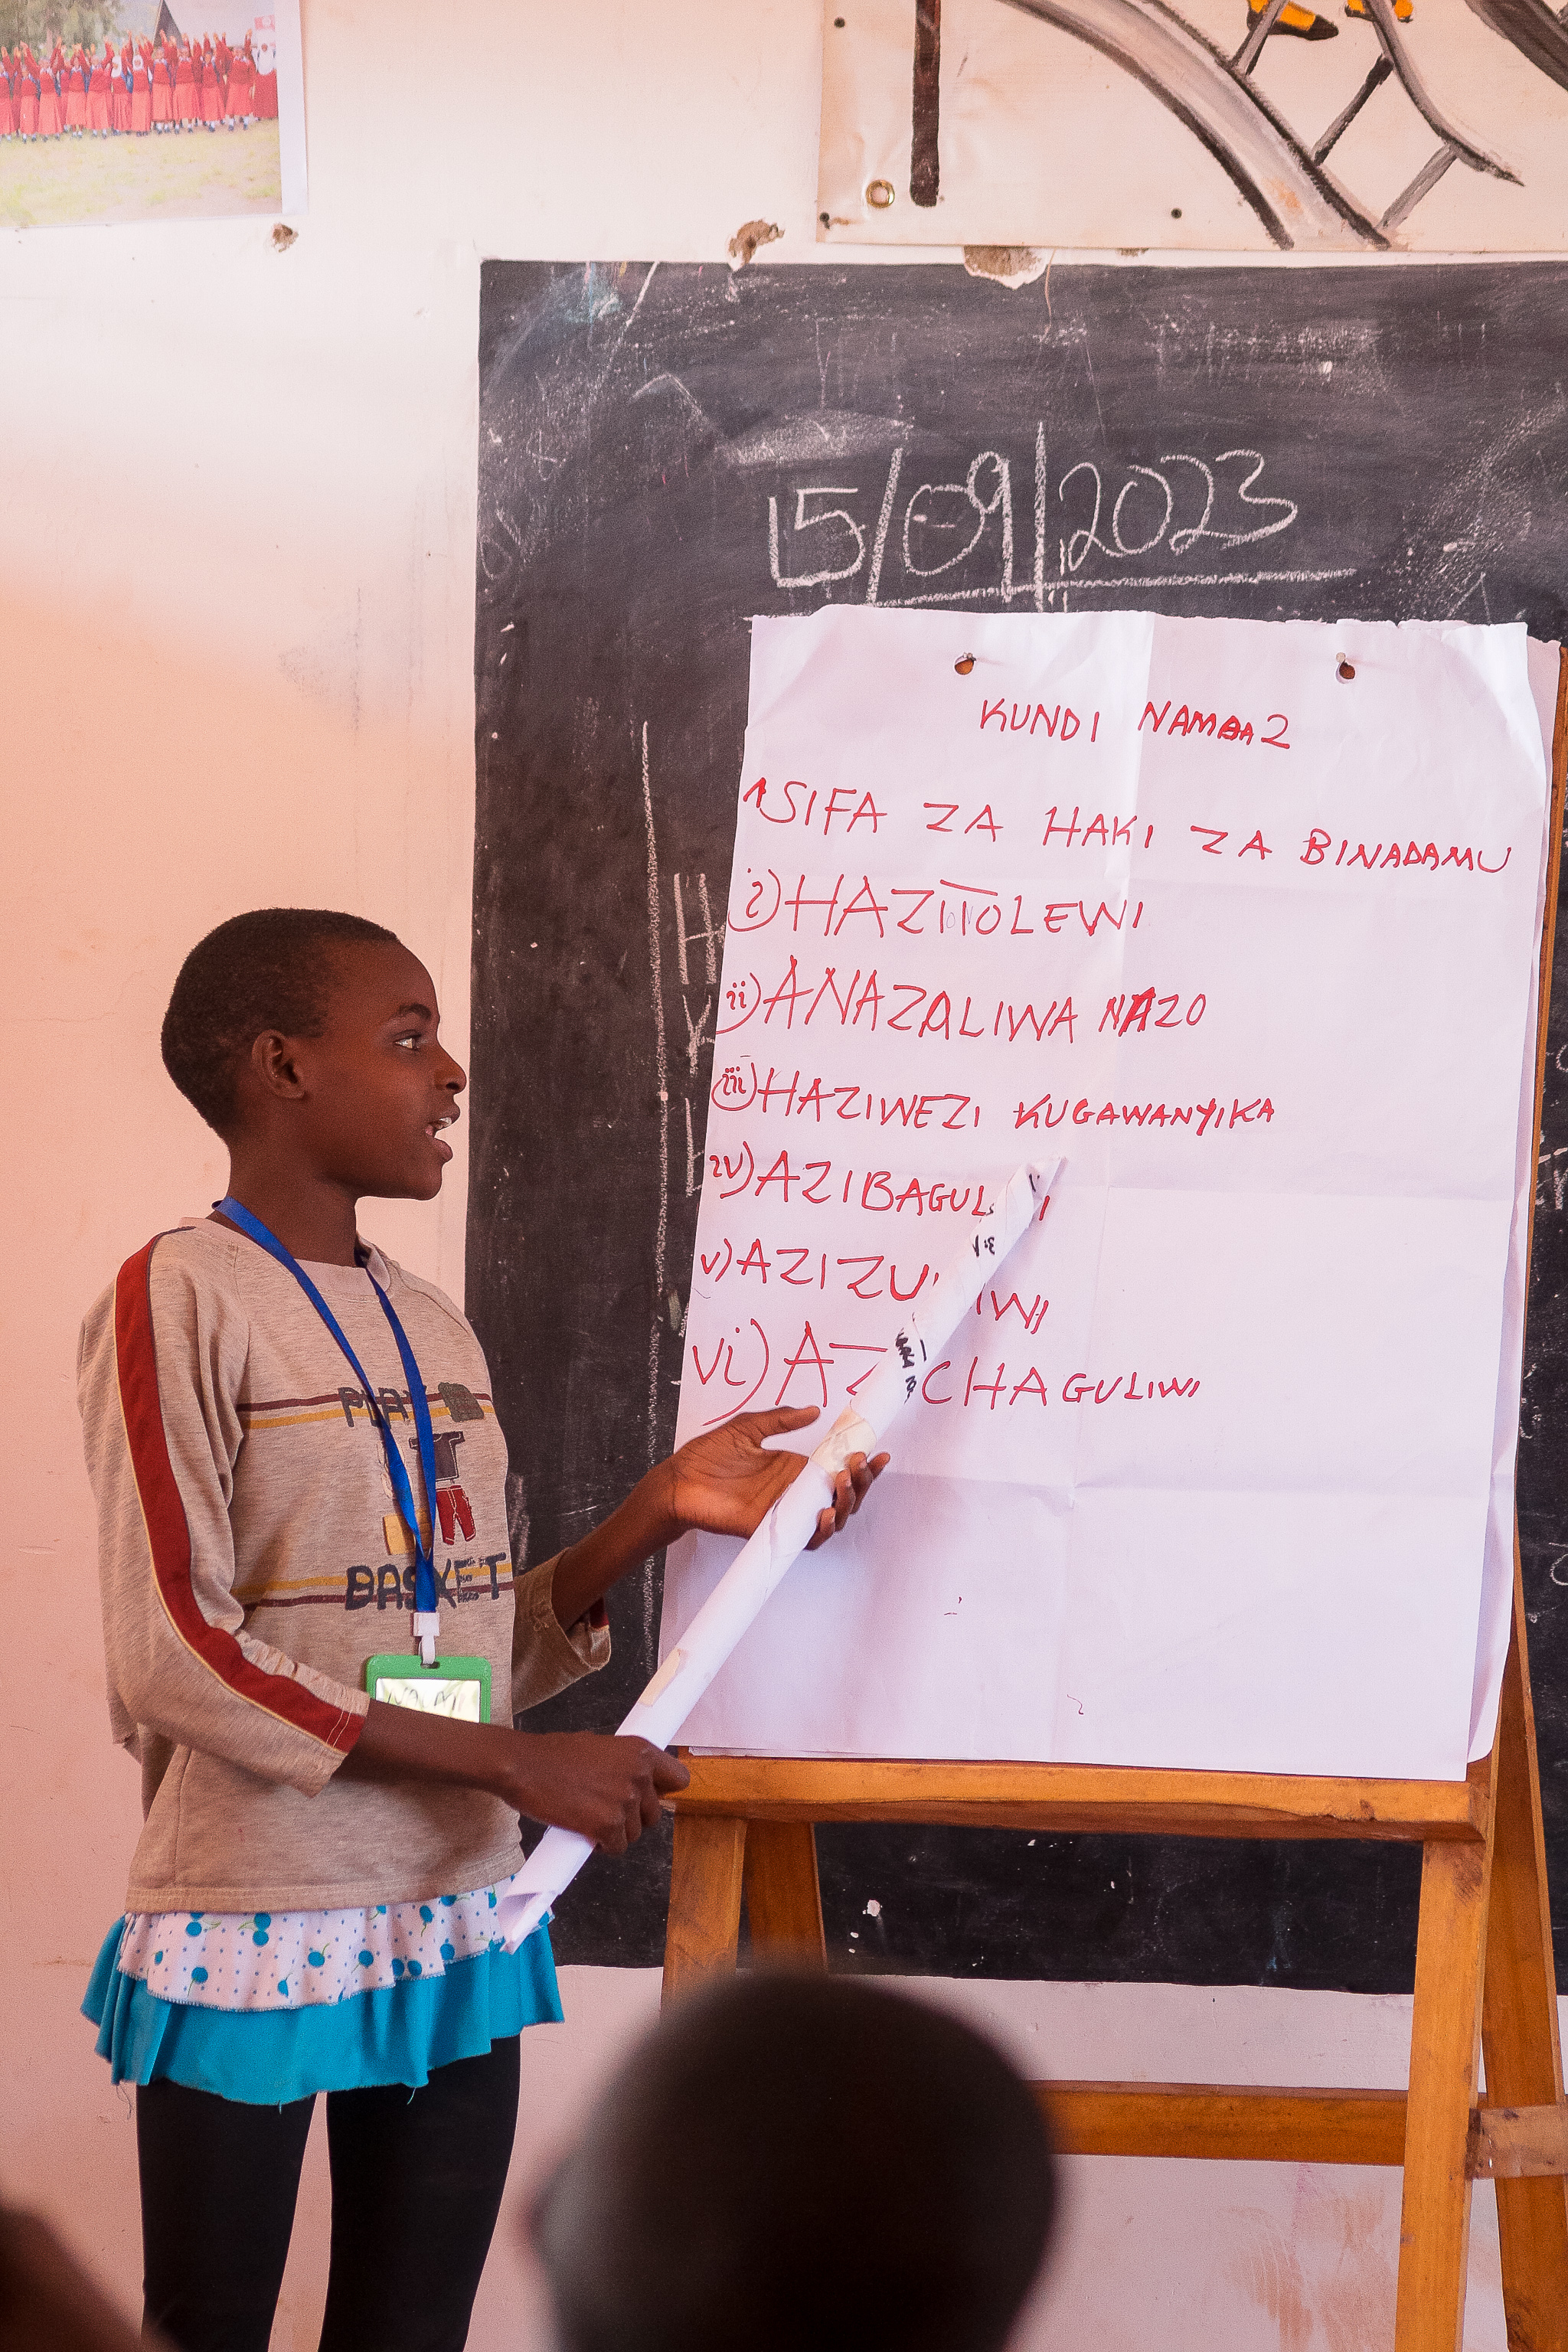 15/09/2023
KUNDI NAMBA 2
1 SIFA ZA HAKI ZA BINADAMU
i) HAZITOLEWI
ii) ANAZALIWA NAZO
iii) HAZIWEZI KUGAWANYIKA
iv)
v)
vi) CHAGULIWI
PLAY
BASKET